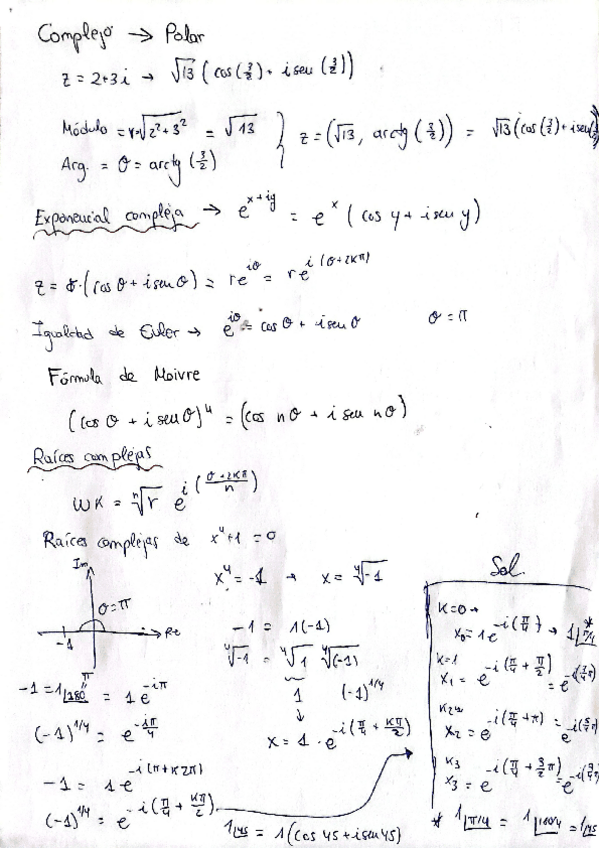 Complejo → Polar
z = 2+3i → √13 (cos(3/2) + i seu (3/2))
Módulo = r = √2²+3² = √13 } z = (√13, arctg (3/2)) = √13 (cos(3/2) + i seu(3/2))
Arg. = θ = arctg (3/2)
Exponencial compleja → e^(x+iy) = e^x (cos y + i seu y)
z = r·(cos θ + i seu θ) = re^(iθ) = re^(i(θ+2kπ))
Igualdad de Euler → e^(iθ) = cos θ + i seu θ θ = π
Fórmula de Moivre
(cos θ + i seu θ)^n = (cos nθ + i seu nθ)
Raíces complejas
wk = ⁿ√r e^(i((θ+2kπ)/n))
Raíces complejas de x⁴+1 = 0
Im
x⁴ = -1 → x = ⁴√-1
θ = π
Re
-1
π
-1 = 1(-1)
⁴√-1 = ⁴√1 ⁴√(-1)
1 (-1)^(1/4)
↓
x = 1 · e^(-i(π/4 + kπ/2))
-1 = 1|180° = 1 e^(-iπ)
(-1)^(1/4) = e^(-iπ/4)
-1 = 1 e^(-i(π+k2π))
(-1)^(1/4) = e^(-i(π/4 + kπ/2))
1|45 = 1(cos 45 + i seu 45)
Sol.
k=0 →
x₀ = 1e^(-i(π/4)) → 1|π/4 *
k=1
x₁ = e^(-i(π/4 + π/2)) = e^(-i(3/4 π))
k2
x₂ = e^(-i(π/4 + π)) = e^(-i(5/4 π))
k3
x₃ = e^(-i(π/4 + 3/2 π)) = e^(-i(
* 1|π/4 = 1|180/4 = 1|45